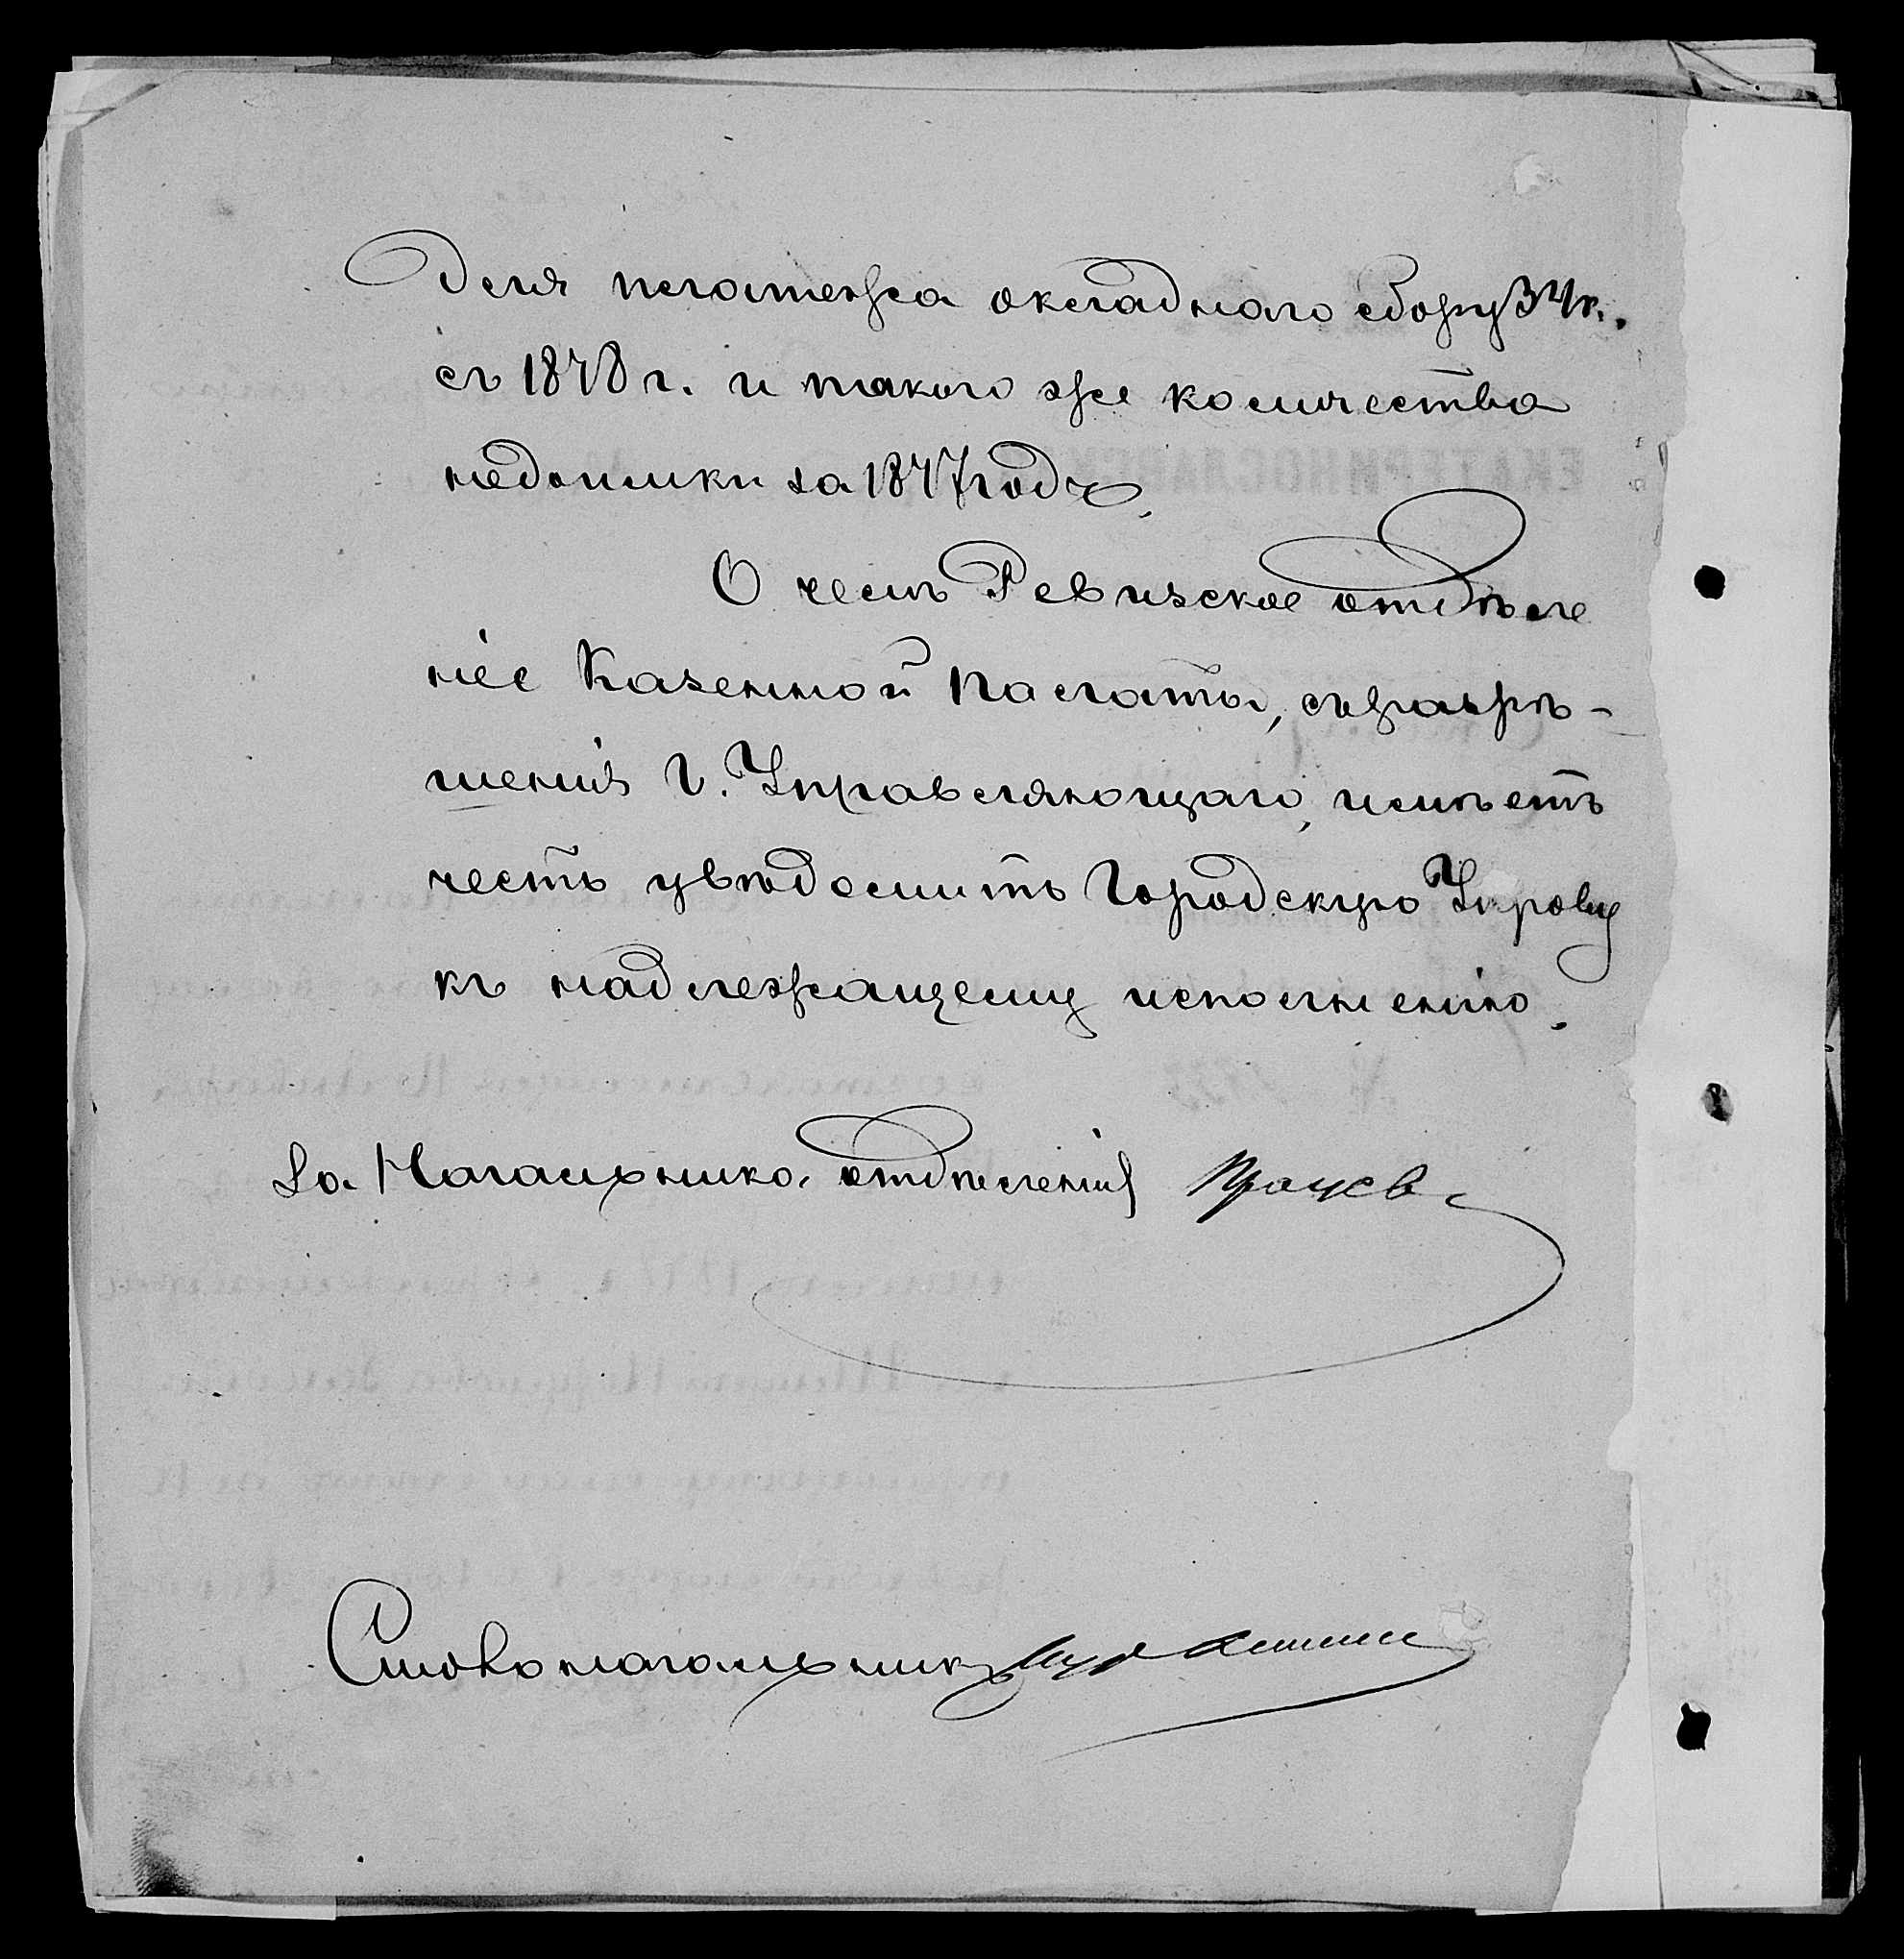 для платежа окладнаго сбору 34 к.
съ 1878 г. и такого же количества
недоимки за 1877 годъ.
О чемъ Ревизское отдѣле
ніе Казенной Палаты, съ разрѣ-
шенія Г. Управляющаго, имѣетъ
честь увѣдомить Городскую Управу
къ надлежащему исполненію.
За Начальника отдѣленія
Столоначальникъ